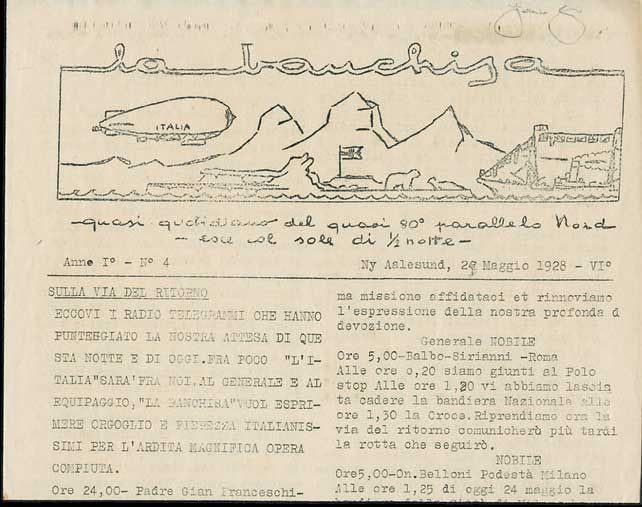 la banchisa
ITALIA
quasi quotidiano del quasi 80° parallelo Nord
- esce col sole di ½ notte -
Anne I° - N° 4
Ny Aalesund, 24 Maggio 1928 - VI°
SULLA VIA DEL RITORNO
ECCOVI I RADIO TELEGRAMMI CHE HANNO
PUNTEGGIATO LA NOSTRA ATTESA DI QUE
STA NOTTE E DI OGGI.FRA POCO "L'I-
TALIA"SARA'FRA NOI.AL GENERALE E AL
EQUIPAGGIO,"LA BANCHISA"VUOL ESPRI-
MERE ORGOGLIO E FIEREZZA ITALIANIS-
SIMI PER L'ARDITA MAGNIFICA OPERA
COMPIUTA.
Ore 24,00- Padre Gian Franceschi-
ma missione affidataci et rinnoviamo
l'espressione della nostra profonda d
devozione.
Generale NOBILE
Ore 5,00-Balbo-Sirianni -Roma
Alle ore 0,20 siamo giunti al Polo
stop Alle ore 1,20 vi abbiamo lascia
ta cadere la bandiera Nazionale alle
ore 1,30 la Croce.Riprendiamo ora la
via del ritorno comunicherò più tardi
la rotta che seguirò.
NOBILE
Ore5,00-On.Belloni Podestà Milano
Alle ore 1,25 di oggi 24 maggio la